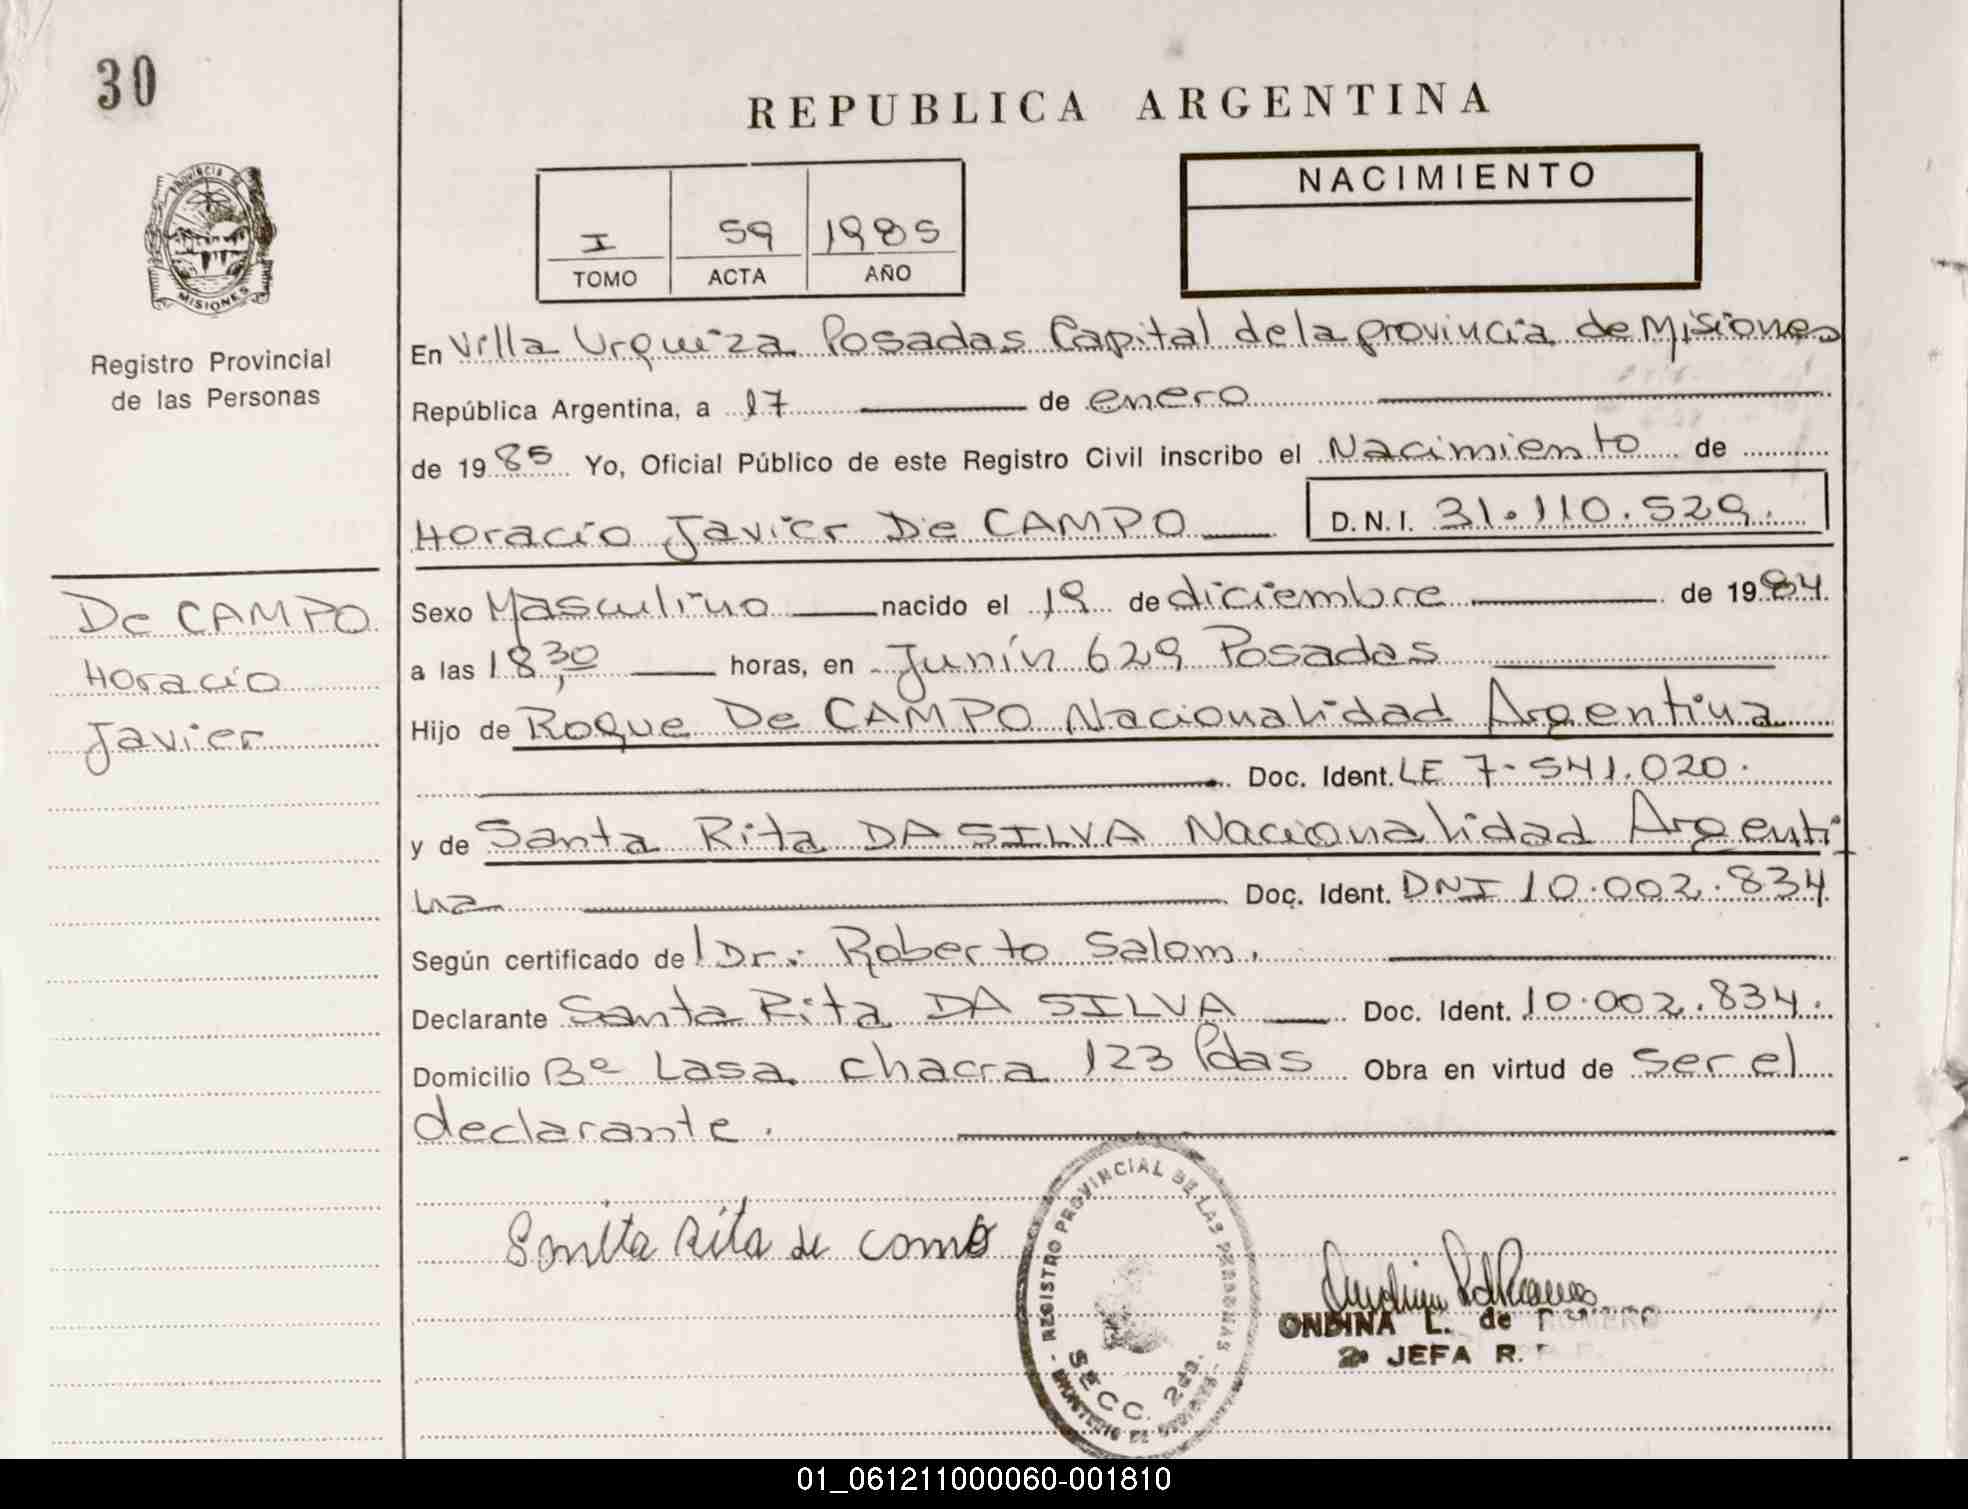 30
REPUBLICA ARGENTINA
PROVINCIA DE
MISIONES
Registro Provincial
de las Personas
I 59 1985
TOMO ACTA AÑO
NACIMIENTO
En Villa Urquiza Posadas Capital de la provincia de Misiones
República Argentina, a 17 de enero
de 1985 Yo, Oficial Público de este Registro Civil inscribo el Nacimiento de
Horacio Javier De CAMPO D.N.I. 31.110.529.
De CAMPO
Horacio
Javier
Sexo Masculino nacido el 19 de diciembre de 1984
a las 18,30 horas, en Junín 629 Posadas
Hijo de Roque De CAMPO Nacionalidad Argentina
Doc. Ident. LE 7.541.020.
y de Santa Rita DA SILVA Nacionalidad Argenti
na Doc. Ident. DNI 10.002.834
Según certificado de Dr.: Roberto Salom.
Declarante Santa Rita DA SILVA Doc. Ident. 10.002.834.
Domicilio Bº Lasa chacra 123 Pdas Obra en virtud de ser el
declarante.
Rita de
REGISTRO PROVINCIAL DE LAS PERSONAS
SECC. 2da.
ONDINA L. de ROMERO
JEFA R.
01_061211000060-001810